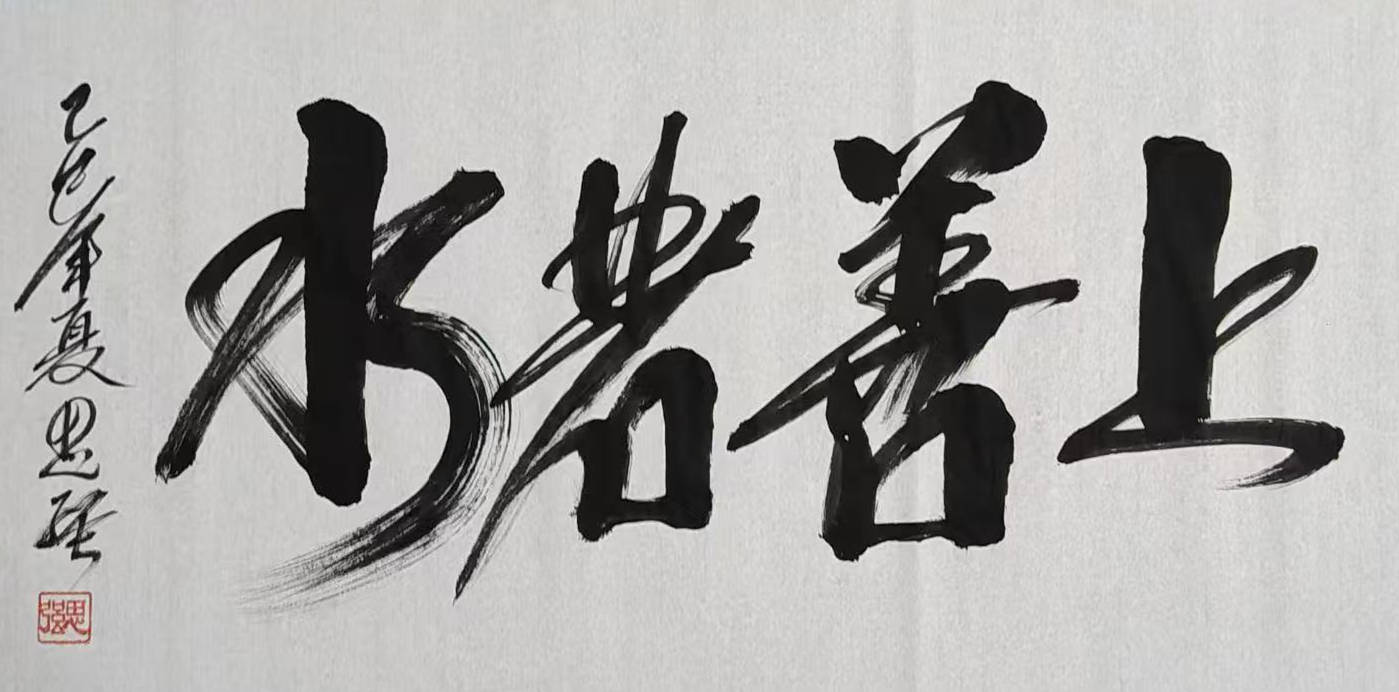 上善若水
乙巳年夏思强
思弦